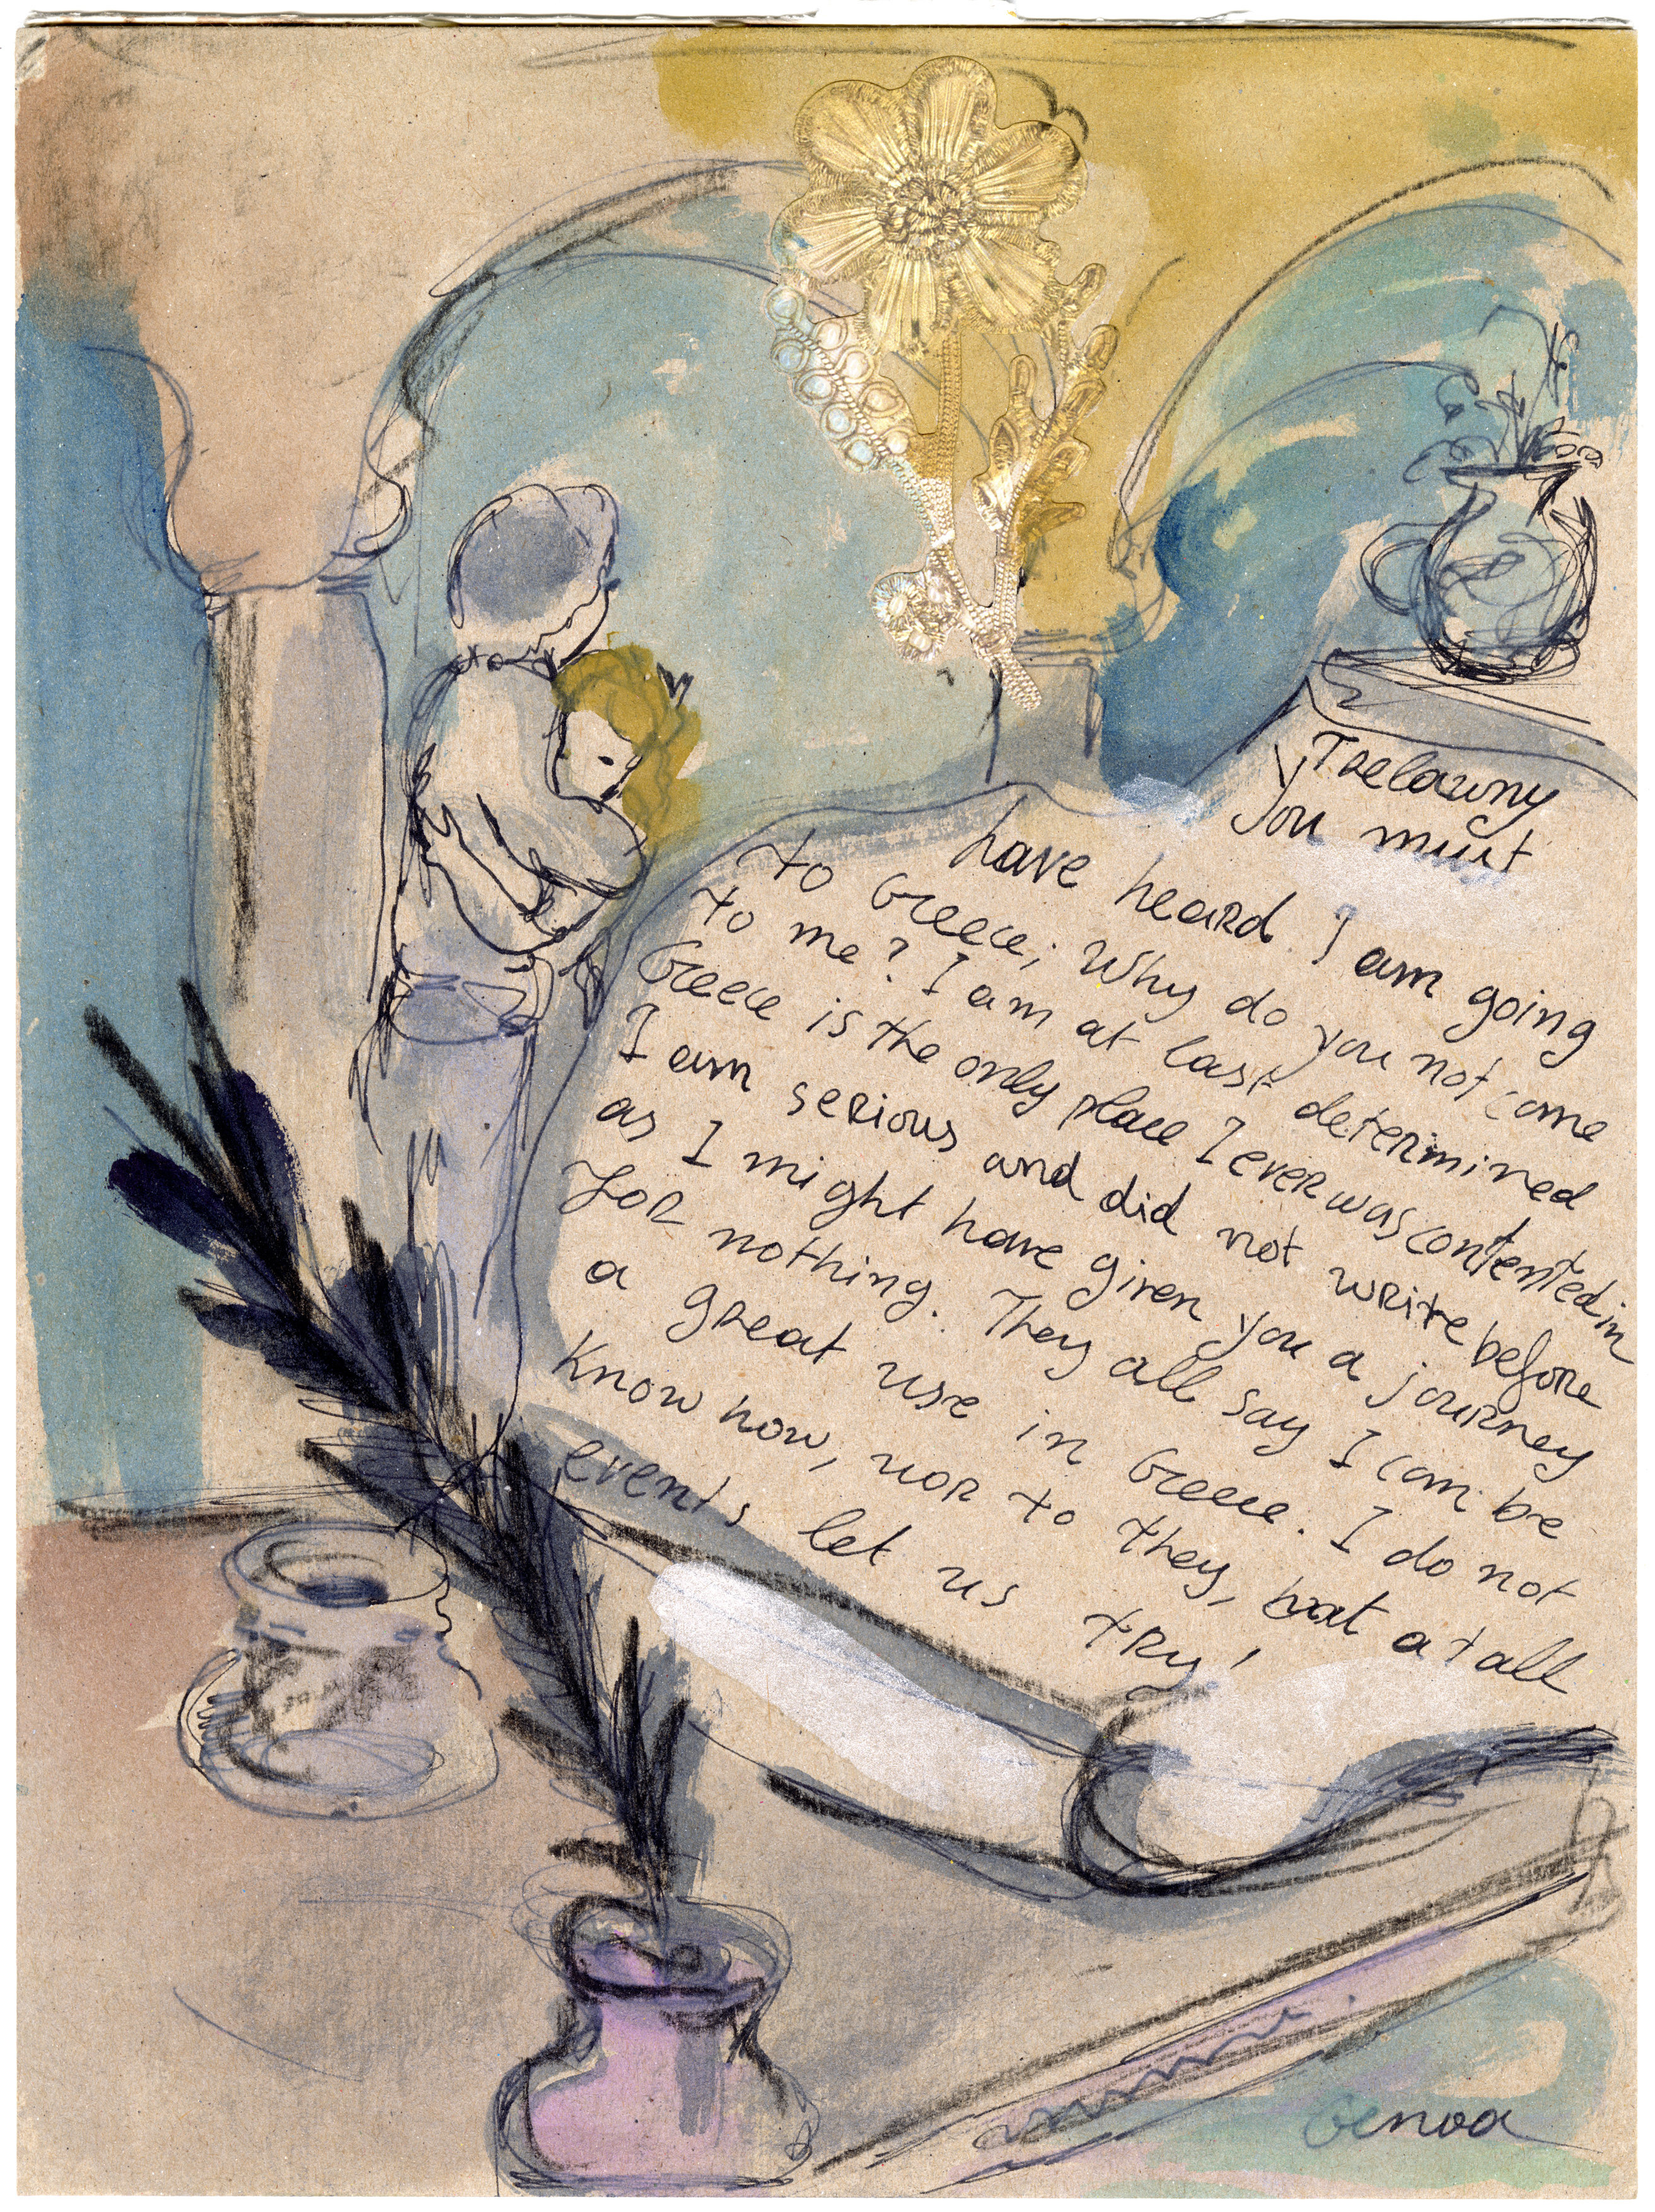 Trelawny
You must
have heard I am going
to Greece; Why do you not come
to me? I am at last determined
Greece is the only place I ever was contented in
I am serious and did not write before
as I might have given you a journey
for nothing. They all say I can be
a great use in Greece. I do not
know how, nor to they, bat at all
events let us try!
Genoa